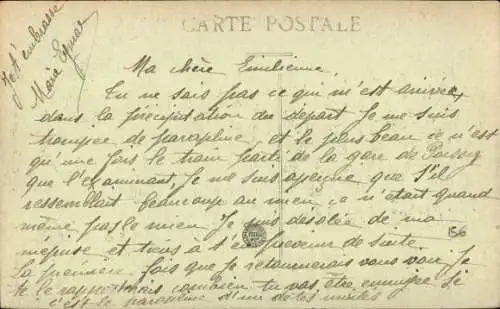 CARTE POSTALE
Je t'embrasse
Ma chère Emilienne,
Tu ne sais pas ce que m'est arrivée,
dans la précipitation du départ je me suis
trompée de parapluie, et le plus beau ce n'est
qu'une fois le train parti de la gare de
que l'examinant je me suis aperçue que s'il
ressemblait beaucoup au mien ce n'était quand
même pas le mien. Je suis désolée de ma
méprise et tiens à t'en prévenir de suite.
La première fois que je retournerais vous voir je
te le rapporterais combien tu vas être ennuyée si
c'est le parapluie d'un de tes invités
156